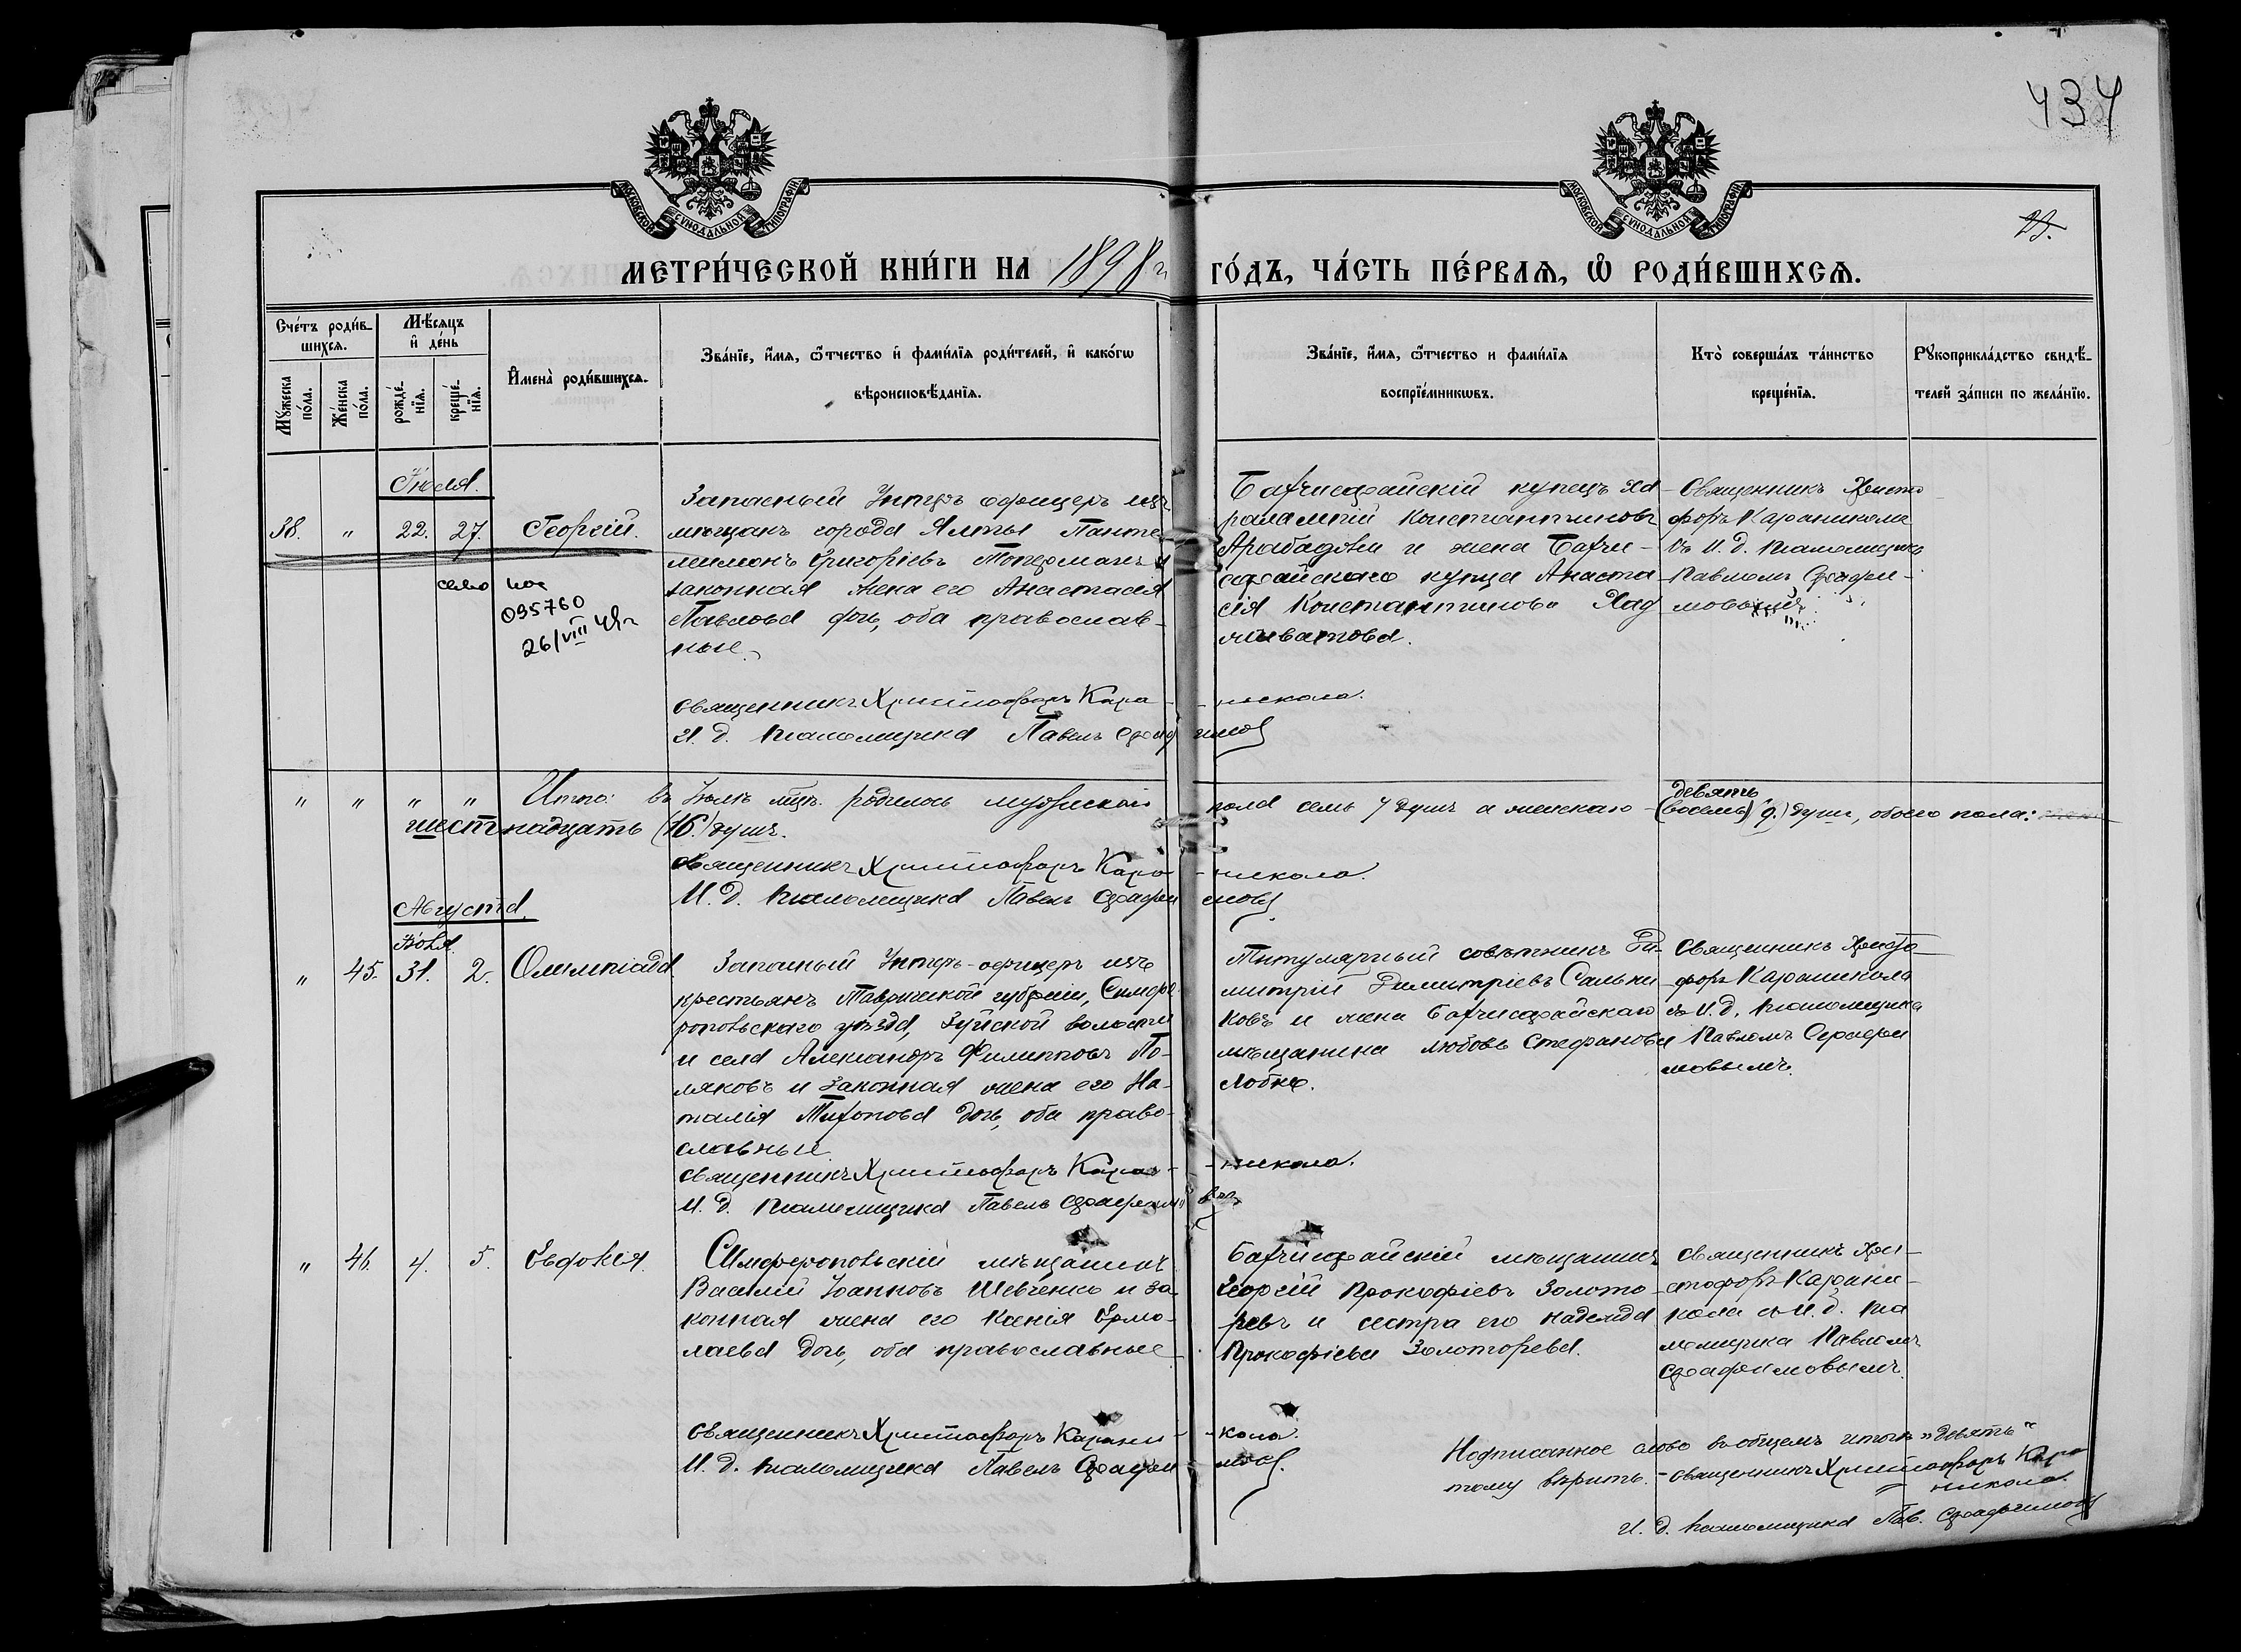 434
25.
МОСКОВСКОЙ СУНОДАЛЬНОЙ ТИПОГРАФІИ
МОСКОВСКОЙ СУНОДАЛЬНОЙ ТИПОГРАФІИ
МЕТРИ́ЧЕСКОЙ КНИ́ГИ НА 1898 г. ГО́ДЪ, ЧА́СТЬ ПЕ́РВАѦ, Ѡ҆ РОДИ́ВШИХСѦ.
Сче́тъ роди́в-
шихсѧ.
Мꙋ́жеска по́ла.
Же́нска по́ла.
Мѣ́сѧцъ
и҆ де́нь
рожде́-
нїѧ.
креще́-
нїѧ.
И҆мена̀ роди́вшихсѧ.
Зва́нїе, и҆́мѧ, ѻ҆́тчество и҆ фами́лїѧ роди́телей, и҆ како́гѡ
вѣроисповѣ́данїѧ.
Зва́нїе, и҆́мѧ, ѻ҆́тчество и фами́лїѧ
воспрїе́мникѡвъ.
Кто̀ соверша́лъ та́инство
креще́нїѧ.
Рꙋкоприкла́дство свидѣ́-
телей за́писи по жела́нїю.
Іюля.
38. " 22. 27. Георгій.
095760
26/VIII 49г
Запасный Унтеръ офицеръ изъ
мѣщанъ города Ялты Панте
леимонъ Григорьевъ Топормахъ и
законная жена его Анастасія
Павлова дочь, оба православ-
ные.
Бахчисарайскій купецъ Ха
ралампій Константиновъ
Арабаджи и жена Бахчи-
сарайскаго купца Анаста
сія Константинова Хад
живатова.
Священникъ Христо
форъ Караникола
съ И. д. псаломщика
Павломъ Серафи-
мовымъ
священникъ Христофоръ Кара-
-никола.
И. д. псаломщика Павелъ Серафимовъ
" " " " Итого: въ Іюлѣ мѣц. родилось мужескаго пола семь 7 душъ а женскаго (восемь) девять 9.) душъ, обоего пола:
шестнадцать (16.) душъ.
священникъ Христофоръ Кара
-никола.
И. д. псаломщика Павелъ Серафимовъ
Августа.
Іюля
" 45. 31. 2. Олимпіада
Запасный Унтеръ-офицеръ изъ
крестьянъ Таврической губерніи, Симферо
ропольскаго уѣзда, Зуйской волости
и села Александръ Филипповъ По-
ляковъ и законная жена его На-
талія Тихонова дочь, оба право-
славные
Титулярный совѣтникъ Ди-
митрій Димитріевъ Сальни
ковъ и жена Бахчисарайскаго
мѣщанина Любовь Стефанова
Лобко.
Священникъ Христо
форъ Караникола
съ И. д. псаломщика
Павломъ Серафи
мовымъ.
священникъ Христофоръ Кара-
-никола.
И. д. псаломщика Павелъ Серафимовъ
" 46. 4. 5. Евдокія.
Симферопольскій мѣщанинъ
Василій Іоанновъ Шевченко и за
конная жена его Ксенія Ермо-
лаева дочь, оба православные
Бахчисарайскій мѣщанинъ
Георгій Прокофіевъ Золото-
ревъ и сестра его Надежда
Прокофіева Золоторева.
священникъ Хри-
стофоръ Карани-
кола съ И. д. пса
ломщика Павломъ
Серафимовымъ.
священникъ Христофоръ Карани-
-кола.
И. д. псаломщика Павелъ Серафимовъ
Надписанное слово въ общемъ итогѣ „девять“
тому вѣрить. - священникъ Христофоръ Кара
никола.
И. д. псаломщика Пав. Серафимовъ